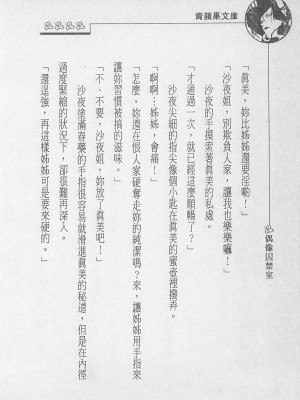 青蘋果文庫
偶像囚禁室
「眞美，妳比姊姊還要淫蕩！」
「沙夜姐，別欺負人家，讓我也樂樂嘛！」
沙夜的手摸索著眞美的私處。
「才通過一次，就已經這麼順暢了？」
沙夜尖細的指尖像個小匙在眞美的蜜壺裡撥弄。
「啊啊…姊姊，會痛！」
「怎麼，妳還在恨人家硬奪走妳的純潔嗎？來，讓姊姊用手指來
讓妳習慣被搞的滋味。」
「不、不要，沙夜姐，妳放了眞美吧！」
沙夜塗滿春藥的手指很容易就滑進眞美的秘道，但是在內徑
過度緊縮的狀況下，卻很難再深入。
「還逞強，再這樣姊姊可是要來硬的。」